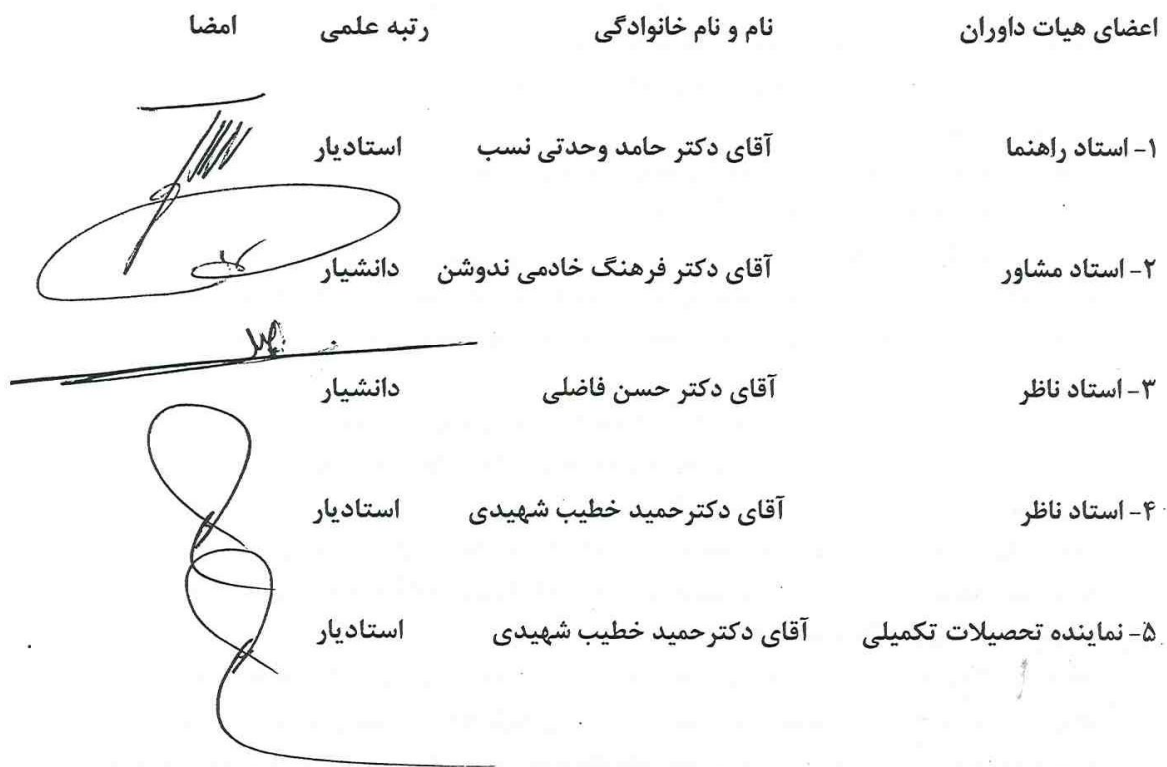 اعضای هیات داوران نام و نام خانوادگی رتبه علمی امضا
۱- استاد راهنما آقای دکتر حامد وحدتی نسب استادیار
۲- استاد مشاور آقای دکتر فرهنگ خادمی ندوشن دانشیار
۳- استاد ناظر آقای دکتر حسن فاضلی دانشیار
۴- استاد ناظر آقای دکترحمید خطیب شهیدی استادیار
۵- نماینده تحصیلات تکمیلی آقای دکترحمید خطیب شهیدی استادیار